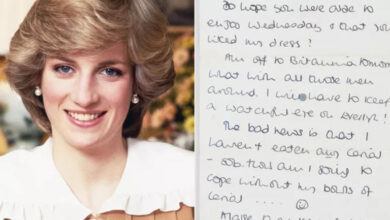 So hope you were able to
enjoy Wednesday & that you
liked my dress!
Am off to Britannia tomorrow
what with all those men
around. I will have to keep
a watchful eye on everyone!
The bad news is that I
haven't eaten any cereal
- how am I going to
cope without my bowls of
cereal ....